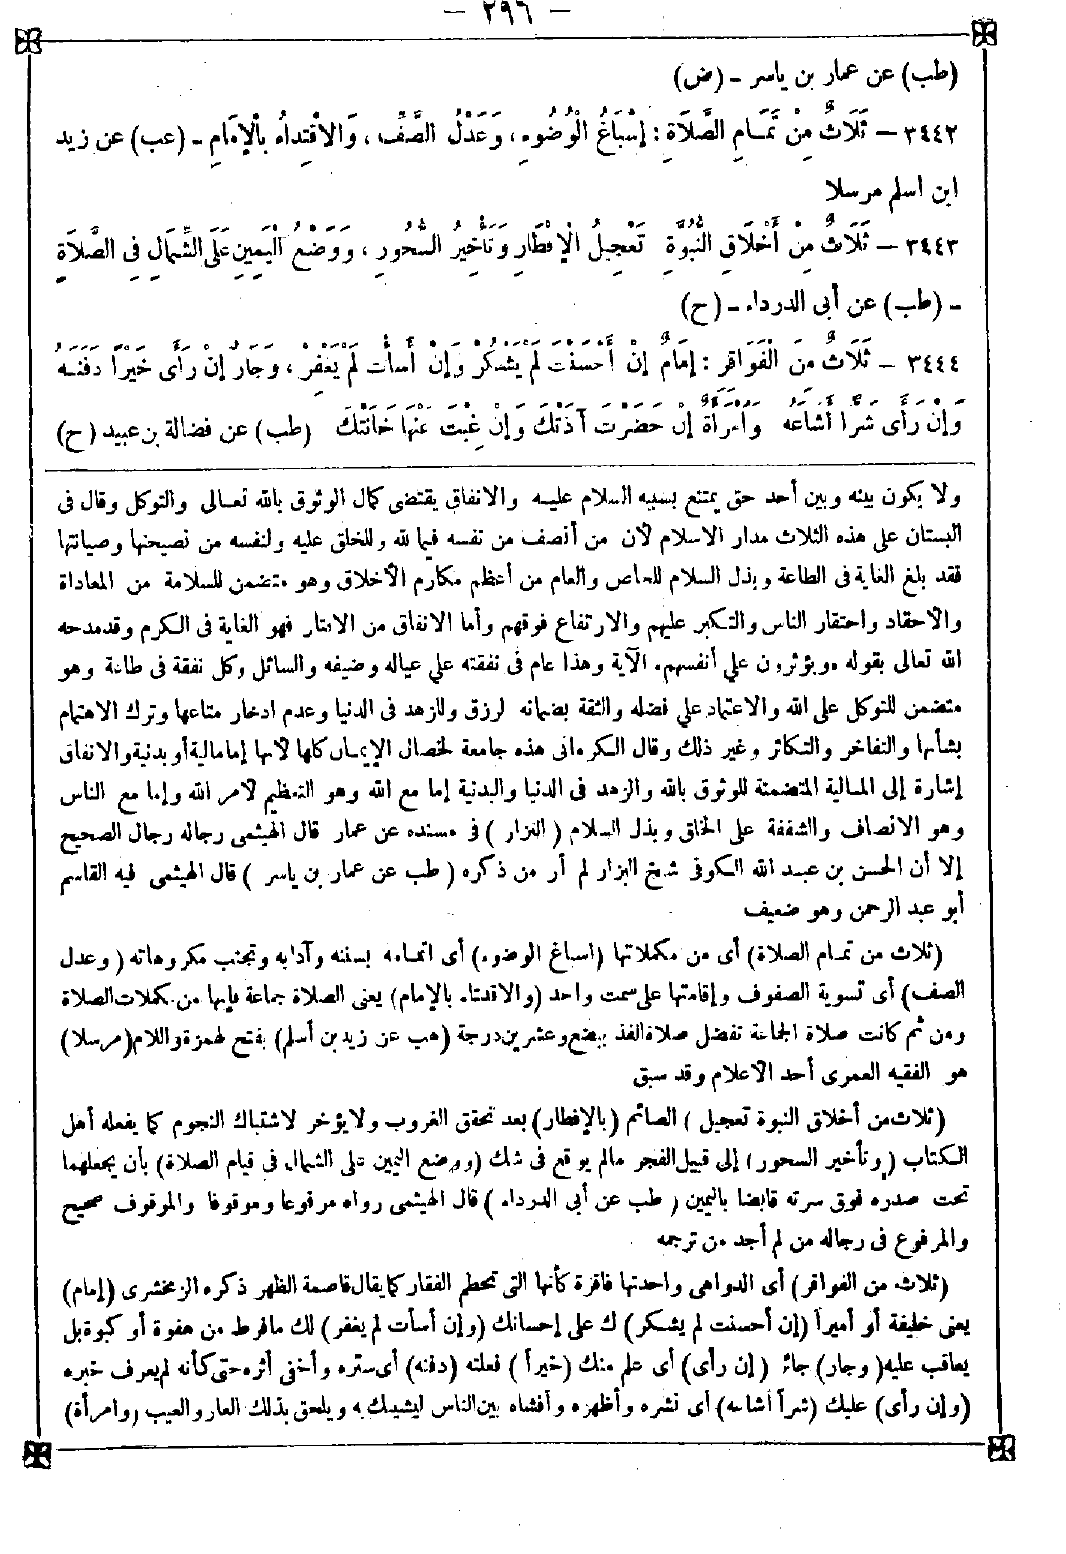 — ٢٩٦ —
(طب) عن عمار بن ياسر - (ض)
٣٤٤٢ — ثَلَاثٌ مِنْ تَمَامِ الصَّلَاةِ : إِسْبَاغُ الْوُضُوءِ ، وَعَدْلُ الصَّفِّ ، وَالاِقْتِدَاءُ بِالْإِمَامِ - (عب) عن زيد
ابن اسلم مرسلا
٣٤٤٣ — ثَلَاثٌ مِنْ أَخْلَاقِ النُّبُوَّةِ تَعْجِيلُ الْإِفْطَارِ وَتَأْخِيرُ السُّحُورِ ، وَوَضْعُ الْيَمِينِ عَلَى الشِّمَالِ فِى الصَّلَاةِ
- (طب) عن أبى الدرداء - (ح)
٣٤٤٤ — ثَلَاثٌ مِنَ الْفَوَاقِرِ : إِمَامٌ إِنْ أَحْسَنْتَ لَمْ يَشْكُرْ وَإِنْ أَسَأْتَ لَمْ يَغْفِرْ ، وَجَارٌ إِنْ رَأَى خَيْرًا دَفَنَهُ
وَإِنْ رَأَى شَرًّا أَشَاعَهُ وَامْرَأَةٌ إِنْ حَضَرْتَ آذَتْكَ وَإِنْ غِبْتَ عَنْهَا خَانَتْكَ (طب) عن فضالة بن عبيد (ح)
ولا يكون بينه وبين أحد حق يمتنع بسببه السلام عليه والانفاق يقتضى كمال الوثوق بالله تعالى والتوكل وقال فى
البستان على هذه الثلاث مدار الاسلام لأن من أنصف من نفسه فيما لله وللخلق عليه ولنفسه من نصيحتها وصيانتها
فقد بلغ الغاية فى الطاعة وبذل السلام للخاص والعام من أعظم مكارم الأخلاق وهو متضمن للسلامة من المعاداة
والاحقاد واحتقار الناس والتكبر عليهم والارتفاع فوقهم وأما الانفاق من الاقتار فهو الغاية فى الكرم وقدمدحه
الله تعالى بقوله «ويؤثرون على أنفسهم» الآية وهذا عام فى نفقته على عياله وضيفه والسائل وكل نفقة فى طاعة وهو
متضمن للتوكل على الله والاعتماد على فضله والثقة بضمانه لرزق وللزهد فى الدنيا وعدم ادخار متاعها وترك الاهتمام
بشأنها والتفاخر والتكاثر وغير ذلك وقال الكرمانى هذه جامعة لخصال الإيمان كلها لأنها إمامالية أو بدنية والانفاق
إشارة إلى المالية المتضمنة للوثوق بالله والزهد فى الدنيا والبدنية إما مع الله وهو التعظيم لأمر الله وإما مع الناس
وهو الانصاف والشفقة على الخلق وبذل السلام (البزار) فى مسنده عن عمار قال الهيثمى رجاله رجال الصحيح
إلا أن الحسن بن عبد الله الكوفى شيخ البزار لم أر من ذكره (طب عن عمار بن ياسر) قال الهيثمى فيه القاسم
أبو عبد الرحمن وهو ضعيف
(ثلاث من تمام الصلاة) أى من مكملاتها (اسباغ الوضوء) أى اتمامه بسننه وآدابه وتجنب مكروهاته (وعدل
الصف) أى تسوية الصفوف وإقامتها على سمت واحد (والاقتداء بالإمام) يعنى الصلاة جماعة فإنها من مكملات الصلاة
ومن ثم كانت صلاة الجماعة تفضل صلاة الفذ ببضع وعشرين درجة (هب عن زيد بن أسلم) بفتح لهمزة واللام (مرسلا)
هو الفقيه العمرى أحد الاعلام وقد سبق
(ثلاث من أخلاق النبوة تعجيل) الصائم (بالإفطار) بعد تحقق الغروب ولايؤخر لاشتباك النجوم كما يفعله أهل
الكتاب (وتأخير السحور) إلى قبيل الفجر مالم يوقع فى شك (ووضع اليمين على الشمال فى قيام الصلاة) بأن يجعلهما
تحت صدره فوق سرته قابضا باليمين (طب عن أبى الدرداء) قال الهيثمى رواه مرفوعا وموقوفا والموقوف صحيح
والمرفوع فى رجاله من لم أجد من ترجمه
(ثلاث من الفواقر) أى الدواهى واحدتها فاقرة كأنها التى تحطم الفقار كما يقال قاصمة الظهر ذكره الزمخشرى (إمام)
يعنى خليفة أو أميرا (إن أحسنت لم يشكر) ك على إحسانك (وإن أسأت لم يغفر) لك مافرط من هفوة أو كبوة بل
يعاقب عليه (وجار) جائر (إن رأى) أى علم منك (خيراً) فعلته (دفنه) أى ستره وأخفى أثره حتى كأنه لم يعرف خبره
(وإن رأى) عليك (شراً أشاعه) أى نشره وأظهره وأفشاه بين الناس ليشينك به ويلحق بذلك العار والعيب (وامرأة)